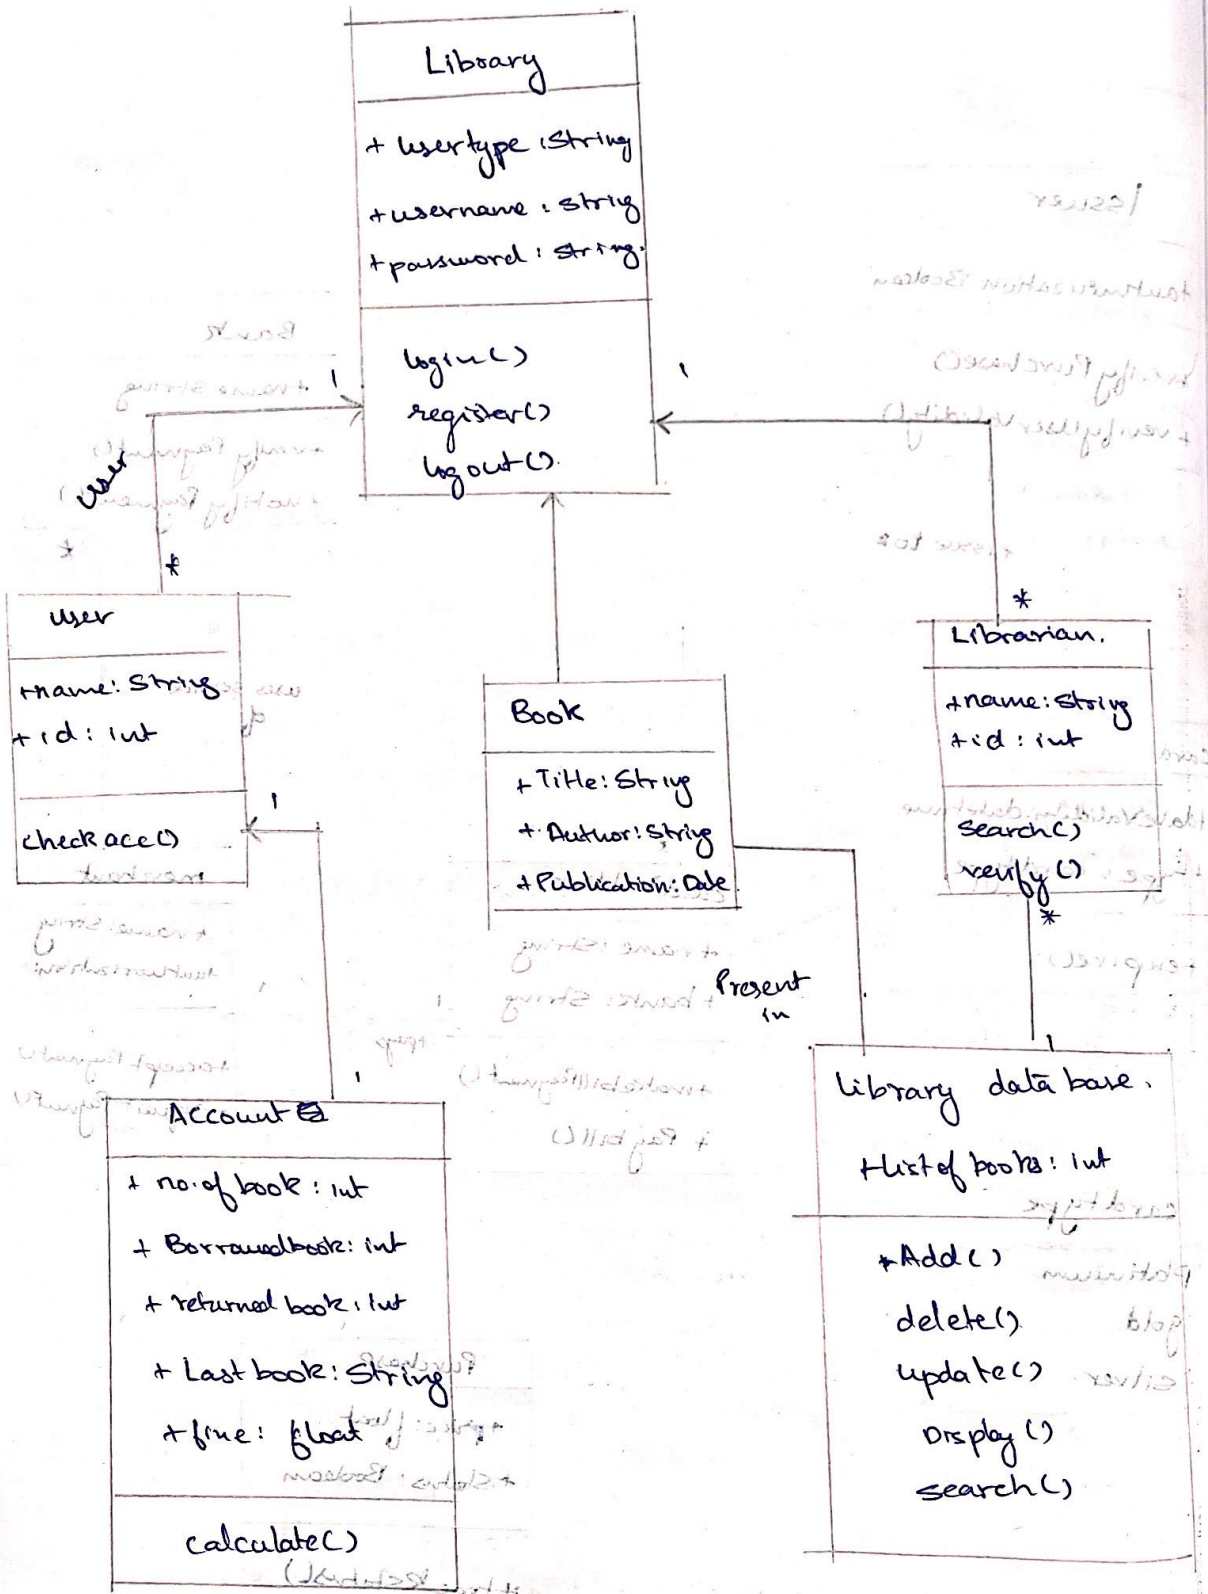 Library
+ usertype : String
+ username : String
+ password : string.
login()
register()
logout().
1
1
user
*
*
*
user
+name: String
+ id: int
check acc()
1
Book
+ Title: String
+ Author: String
+ Publication: Date
Librarian.
+name: String
+id : int
search()
verify()
*
Present
in
1
1
Account
+ no. of book : int
+ Borrowed book: int
+ returned book: int
+ Last book: String
+ fine: float
calculate()
library data base.
+list of books: int
+Add()
delete()
update()
Display()
search()